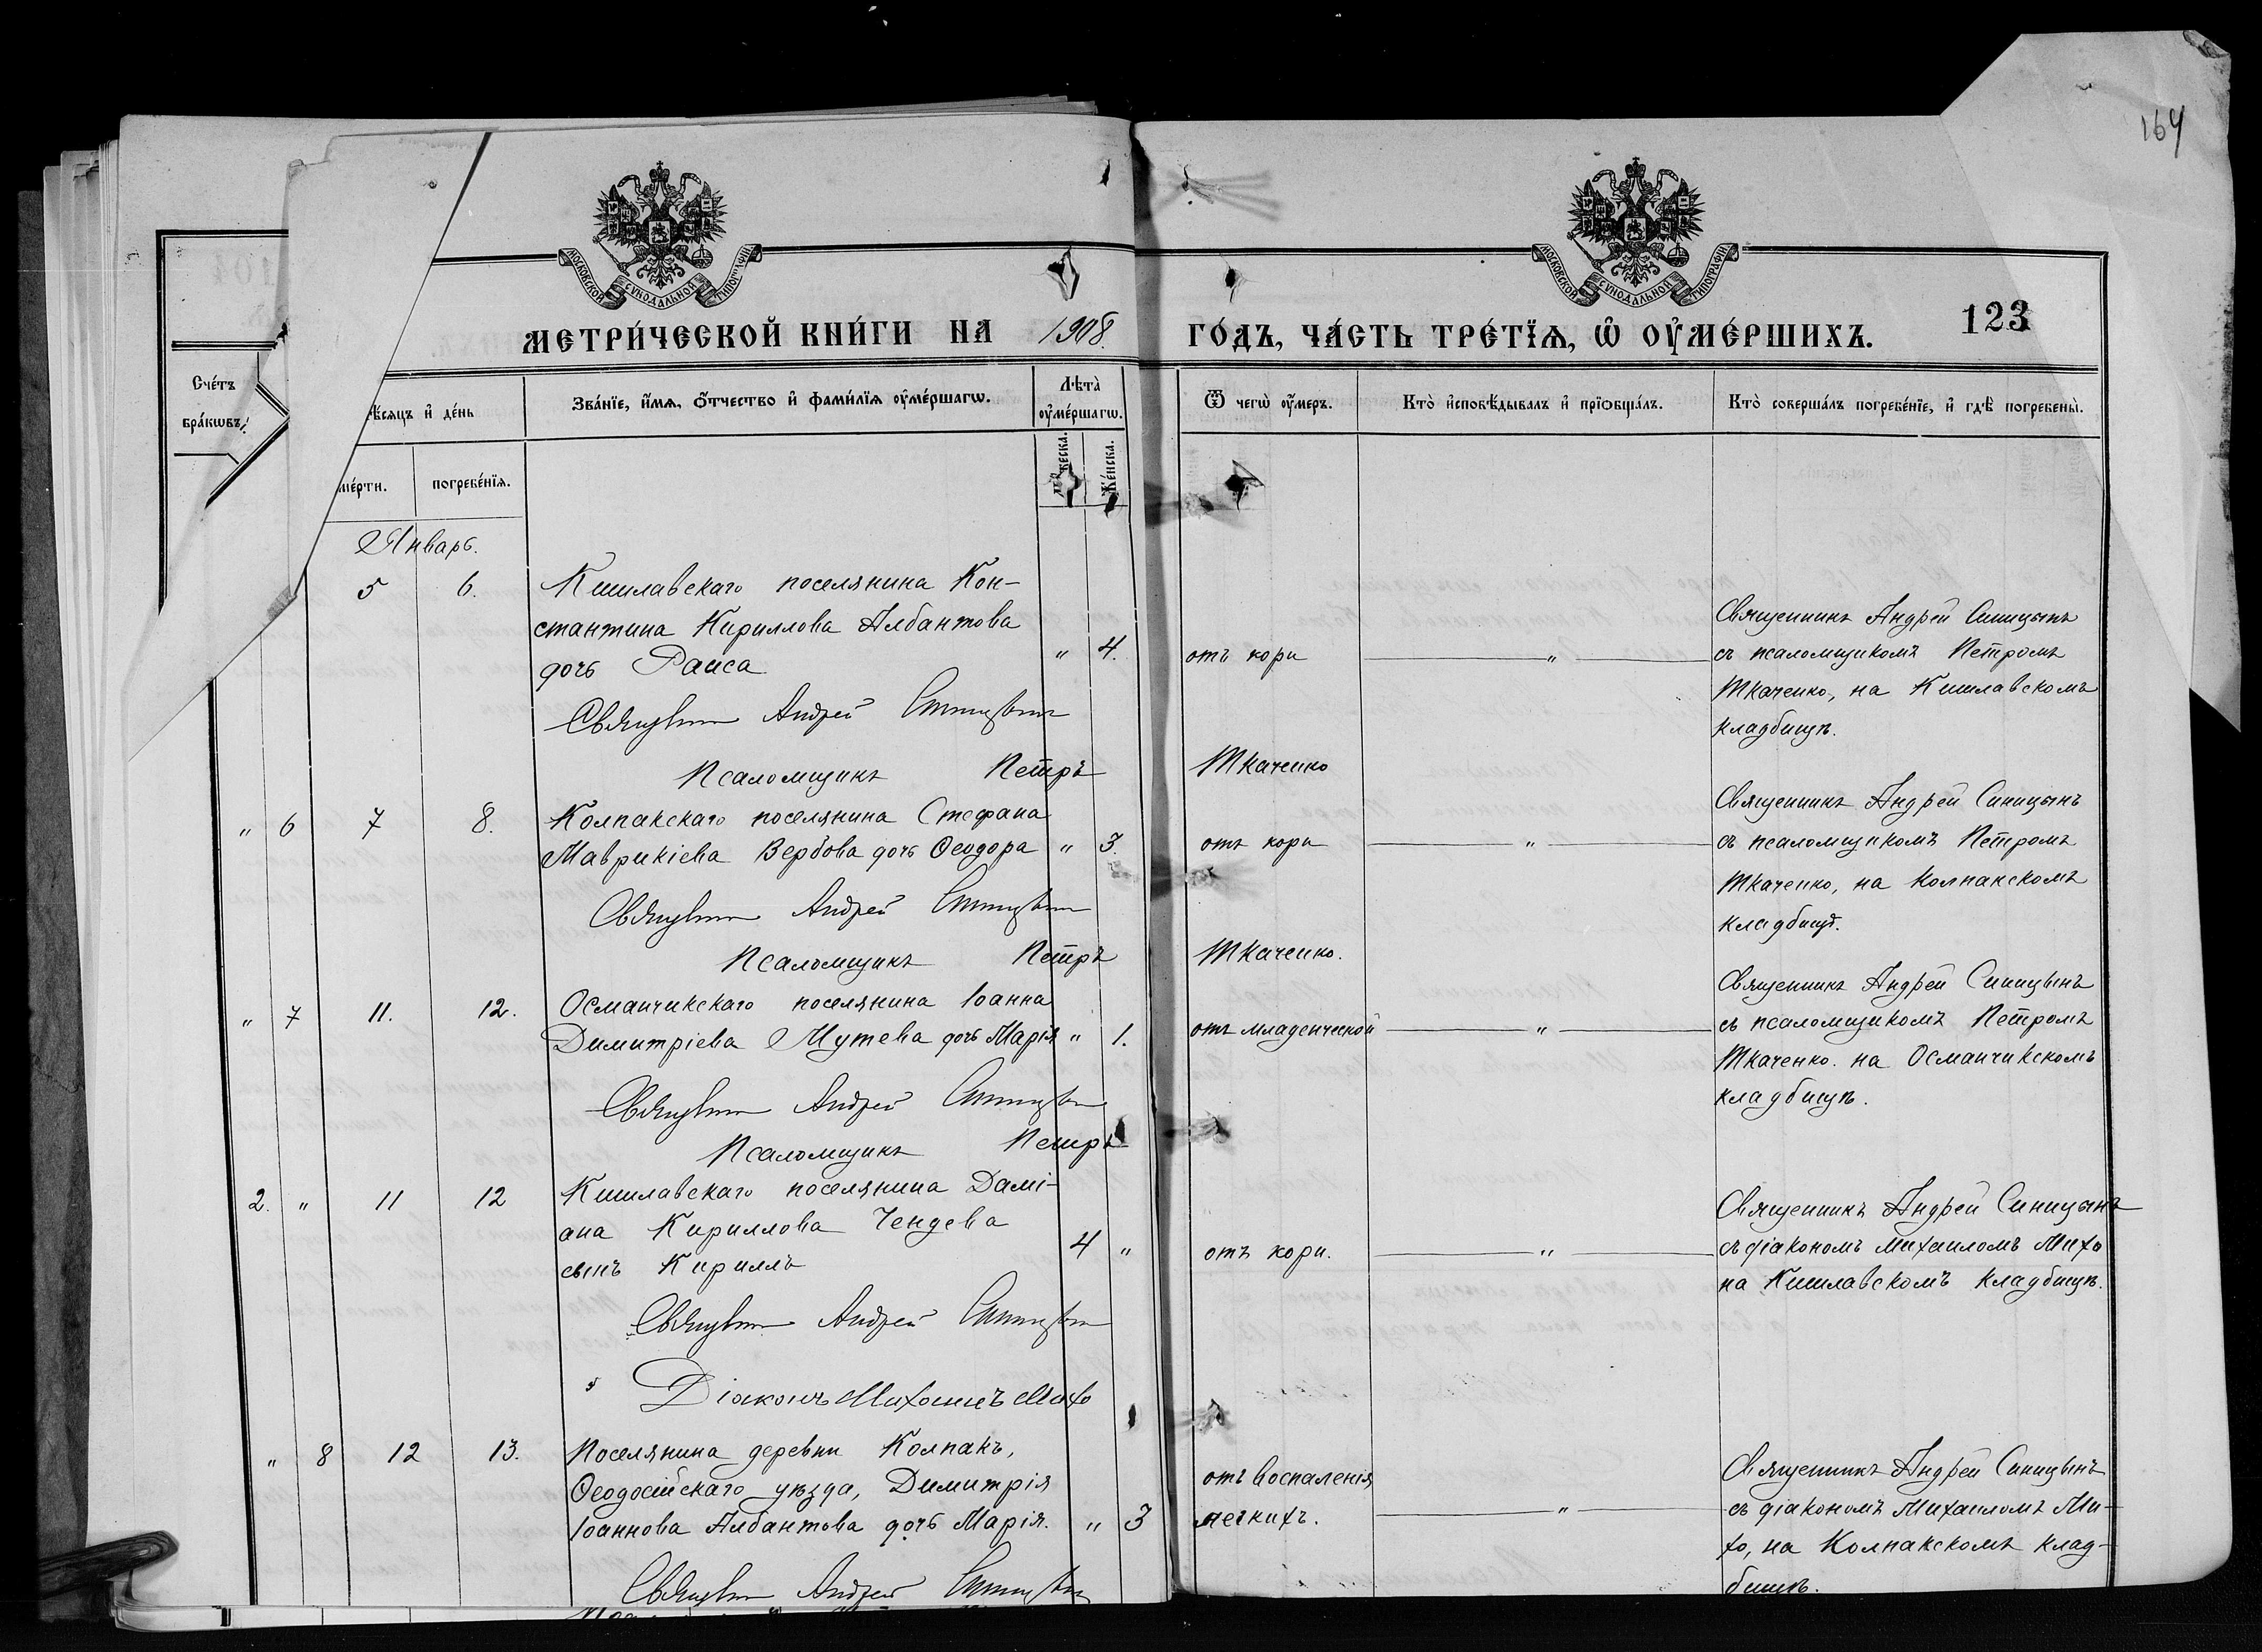 164
МОСКОВСКОЙ СѴНОДАЛЬНОЙ ТИПОГРАФІИ
МОСКОВСКОЙ СѴНОДАЛЬНОЙ ТИПОГРАФІИ
МЕТРИ́ЧЕСКОЙ КНИ́ГИ НА 1908. ГО́ДЪ, ЧА́СТЬ ТРЕ́ТЇѦ, Ѽ ОУ҆МЕ́РШИХЪ. 123
Сче́тъ
бра́кѡвъ
ѣ́сѧцъ и҆ де́нь
ме́рти.
погребе́нїѧ.
Зва́нїе, и҆́мѧ, ѻ҆́тчество и҆ фами́лїѧ оу҆ме́ршагѡ.
Лѣта̀
оу҆ме́ршагѡ.
Же́нска.
Ѿ чегѡ̀ оу҆́меръ.
Кто̀ и҆сповѣ́дывалъ и҆ прїѡбща́лъ.
Кто̀ соверша́лъ погребе́нїе, и҆ гдѣ̀ погребены̀.
Январь.
5 6. Кишлавскаго поселянина Кон-
стантина Кириллова Албантова
дочь Раиса " 4. отъ кори "
Священникъ Андрей Синицынъ
съ псаломщикомъ Петромъ
Ткаченко, на Кишлавскомъ
кладбищѣ.
Священникъ Андрей Синицынъ
Псаломщикъ Петръ Ткаченко
" 6 7 8. Колпакскаго поселянина Стефана
Маврикіева Вербова дочь Ѳеодора " 3. отъ кори "
Священникъ Андрей Синицынъ
съ псаломщикомъ Петромъ
Ткаченко, на Колпакскомъ
кладбищѣ.
Священникъ Андрей Синицынъ
Псаломщикъ Петръ Ткаченко.
" 7 11. 12. Османчикскаго поселянина Іоанна
Димитріева Мутева дочь Марія " 1. отъ младенческой "
Священникъ Андрей Синицынъ
съ псаломщикомъ Петромъ
Ткаченко. на Османчикскомъ
кладбищѣ.
Священникъ Андрей Синицынъ
Псаломщикъ Петръ
2. " 11 12 Кишлавскаго поселянина Дамі-
ана Кириллова Чендева
сынъ Кириллъ 4 " отъ кори. "
Священникъ Андрей Синицынъ
съ діакономъ Михаиломъ Михо
на Кишлавскомъ кладбищѣ.
Священникъ Андрей Синицынъ
Діаконъ Михаилъ Михо
" 8 12 13. Поселянина деревни Колпакъ,
Ѳеодосійскаго уѣзда, Димитрія
Іоаннова Албантова дочь Марія. " 3 отъ воспаленія
легкихъ. "
Священникъ Андрей Синицынъ
съ діакономъ Михаиломъ Ми-
хо, на Колпакскомъ клад-
бищѣ.
Священникъ Андрей Синицынъ